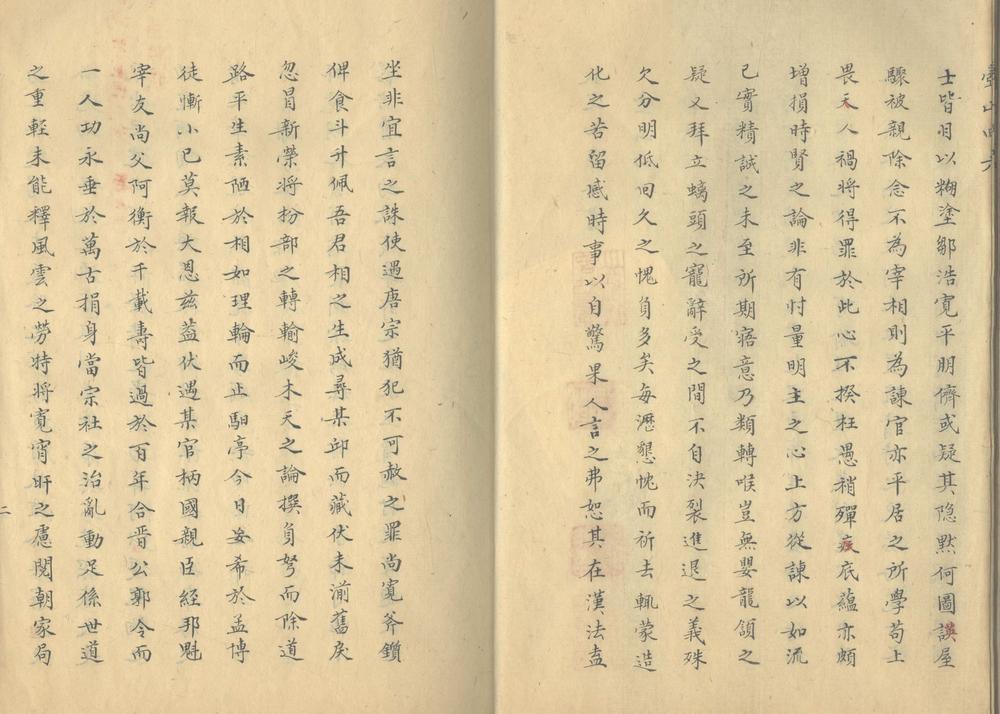 壺山四六
士皆月以糊塗鄒浩寬平朋儕或疑其隐默何圖誤屋
驟被親除念不為宰相則為諫官亦平居之所學苟上
畏天人禍將得罪於此心不揆枉愚稍殫疾底蘊亦頗
增損時賢之論非有忖量明主之心上方從諫以如流
已實精誠之未至所期寤意乃類轉喉豈無嬰龍頷之
疑又拜立螭頭之寵辭受之間不自決裂進退之義殊
欠分明低回久之愧負多矣每瀝懇忱而祈去輒蒙造
化之苦留感時事以自驚果人言之弗恕其在漢法盍
坐非宜言之誅使遇唐宗猶犯不可赦之罪尚寬斧鑕
俾食斗升佩吾君相之生成尋某邱而藏伏未湔舊戾
忽冒新榮將扮部之轉輸峻木天之論撰負弩而除道
路平生素陋於相如理輪而止馹亭今日妄希於孟博
徒慚小已莫報大恩茲葢伏遇某官柄國親臣經邦魁
宰友尚父阿衡於千載壽皆過於百年合晋公郭令而
一人功永垂於萬古捐身當宗社之治亂動足係世道
之重輕未能釋風雲之勞特將寬宵旰之慮閔朝家局
二